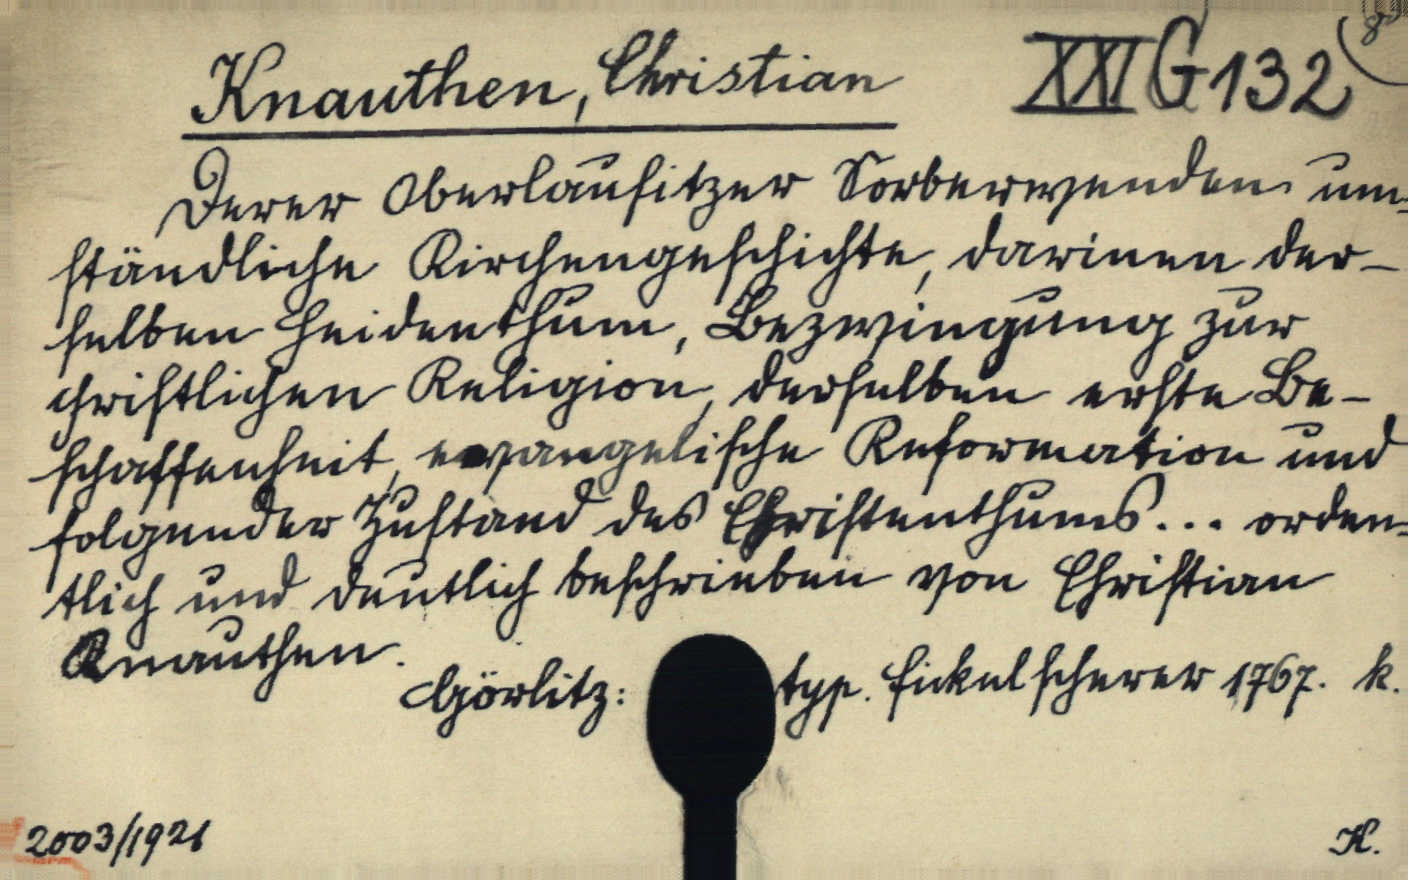 Knauthen, Christian
XXI G 132
8°
Derer Oberlausitzer Sorberwenden um-
ständliche Kirchengeschichte, darinen der-
selben Heidenthum, Bezwingung zur
christlichen Religion, derselben erste Be-
schaffenheit, evangelische Reformation und
folgender Zustand des Christenthums... orden-
tlich und deutlich beschrieben von Christian
Knauthen.
Görlitz: typ. Fickelscherer 1767. k.
2003/1921
K.